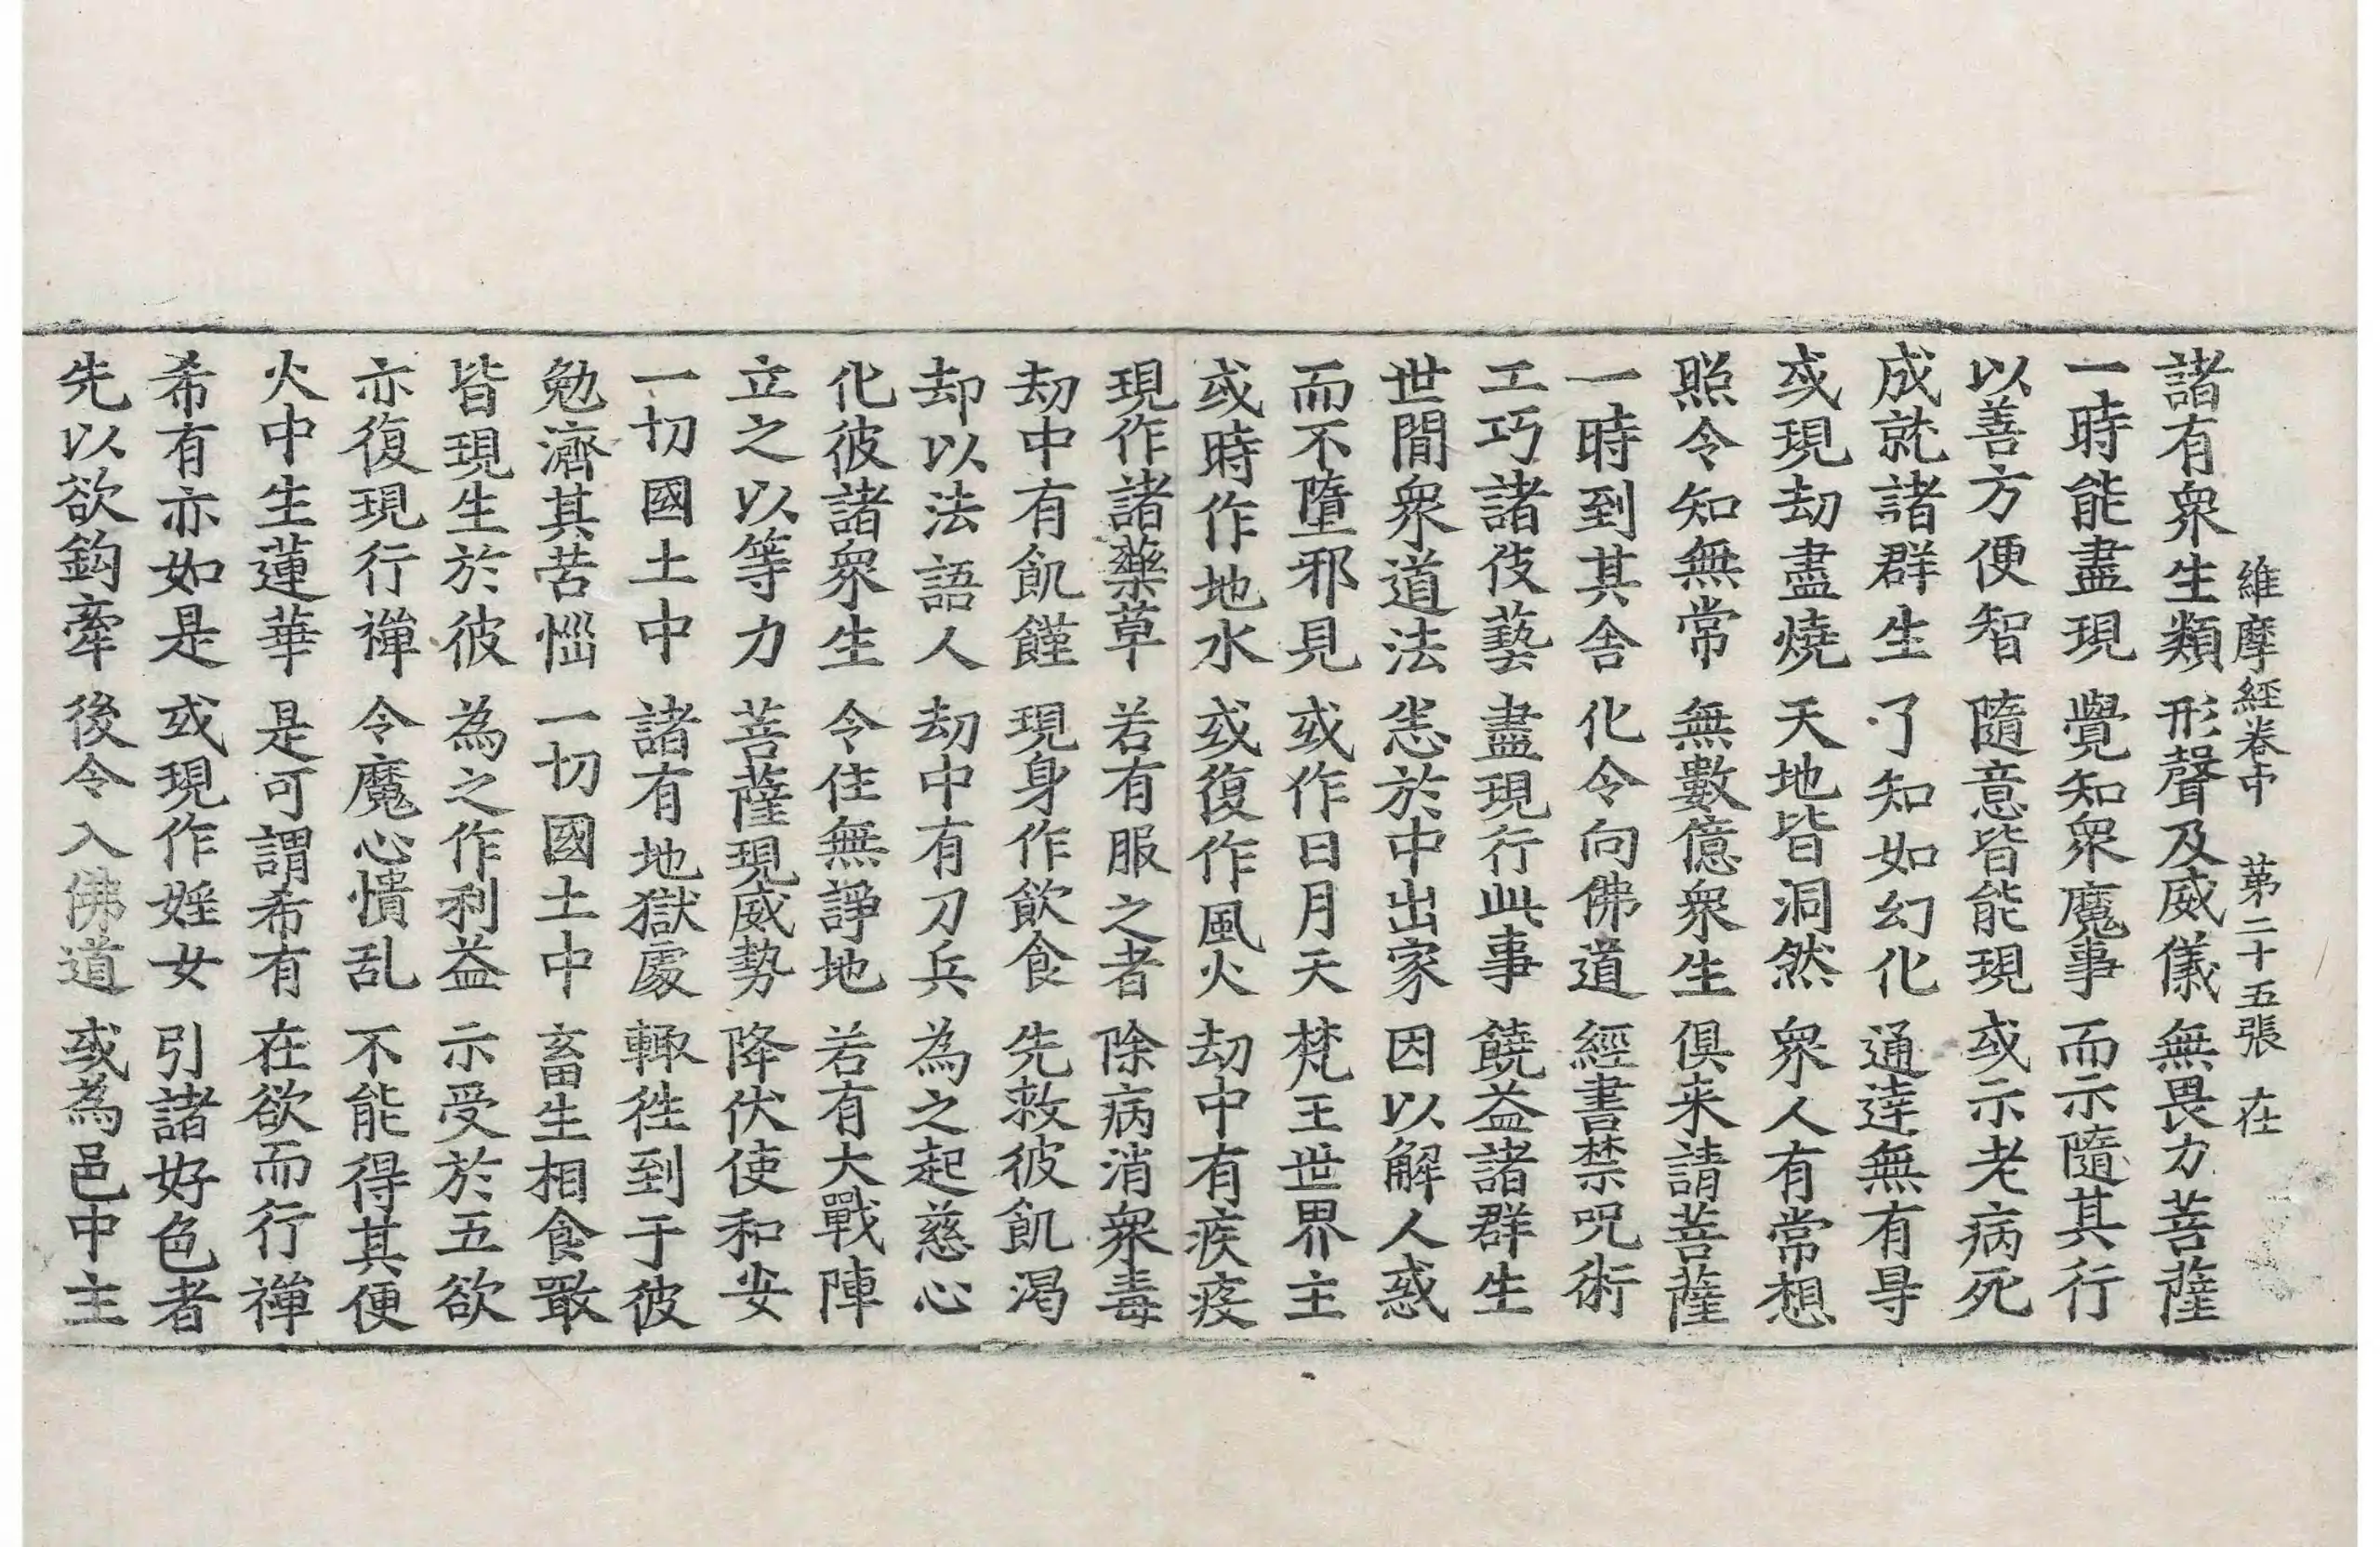 維摩經卷中 苐二十五張 在
諸有衆生類 形聲及威儀 無畏力菩薩
一時能盡現 覺知衆魔事 而示隨其行
以善方便智 隨意皆能現 或示老病死
成就諸群生 了知如幻化 通達無有㝵
或現劫盡燒 天地皆洞然 衆人有常想
照令知無常 無數億衆生 俱来請菩薩
一時到其舍 化令向佛道 經書禁呪術
工巧諸伎藝 盡現行此事 饒益諸群生
世間衆道法 悉於中出家 因以解人惑
而不墮邪見 或作日月天 梵王世界主
或時作地水 或復作風火 劫中有疾疫
現作諸藥草 若有服之者 除病消衆毒
劫中有飢饉 現身作飲食 先救彼飢渴
却以法語人 劫中有刀兵 為之起慈心
化彼諸衆生 令住無諍地 若有大戰陣
立之以等力 菩薩現威勢 降伏使和安
一切國土中 諸有地獄處 輙徃到于彼
勉濟其苦惱 一切國土中 畜生相食噉
皆現生於彼 為之作利益 示受於五欲
亦復現行禅 令魔心憒乱 不能得其便
火中生蓮華 是可謂希有 在欲而行禅
希有亦如是 或現作婬女 引諸好色者
先以欲鈎牽 後令入佛道 或為邑中主